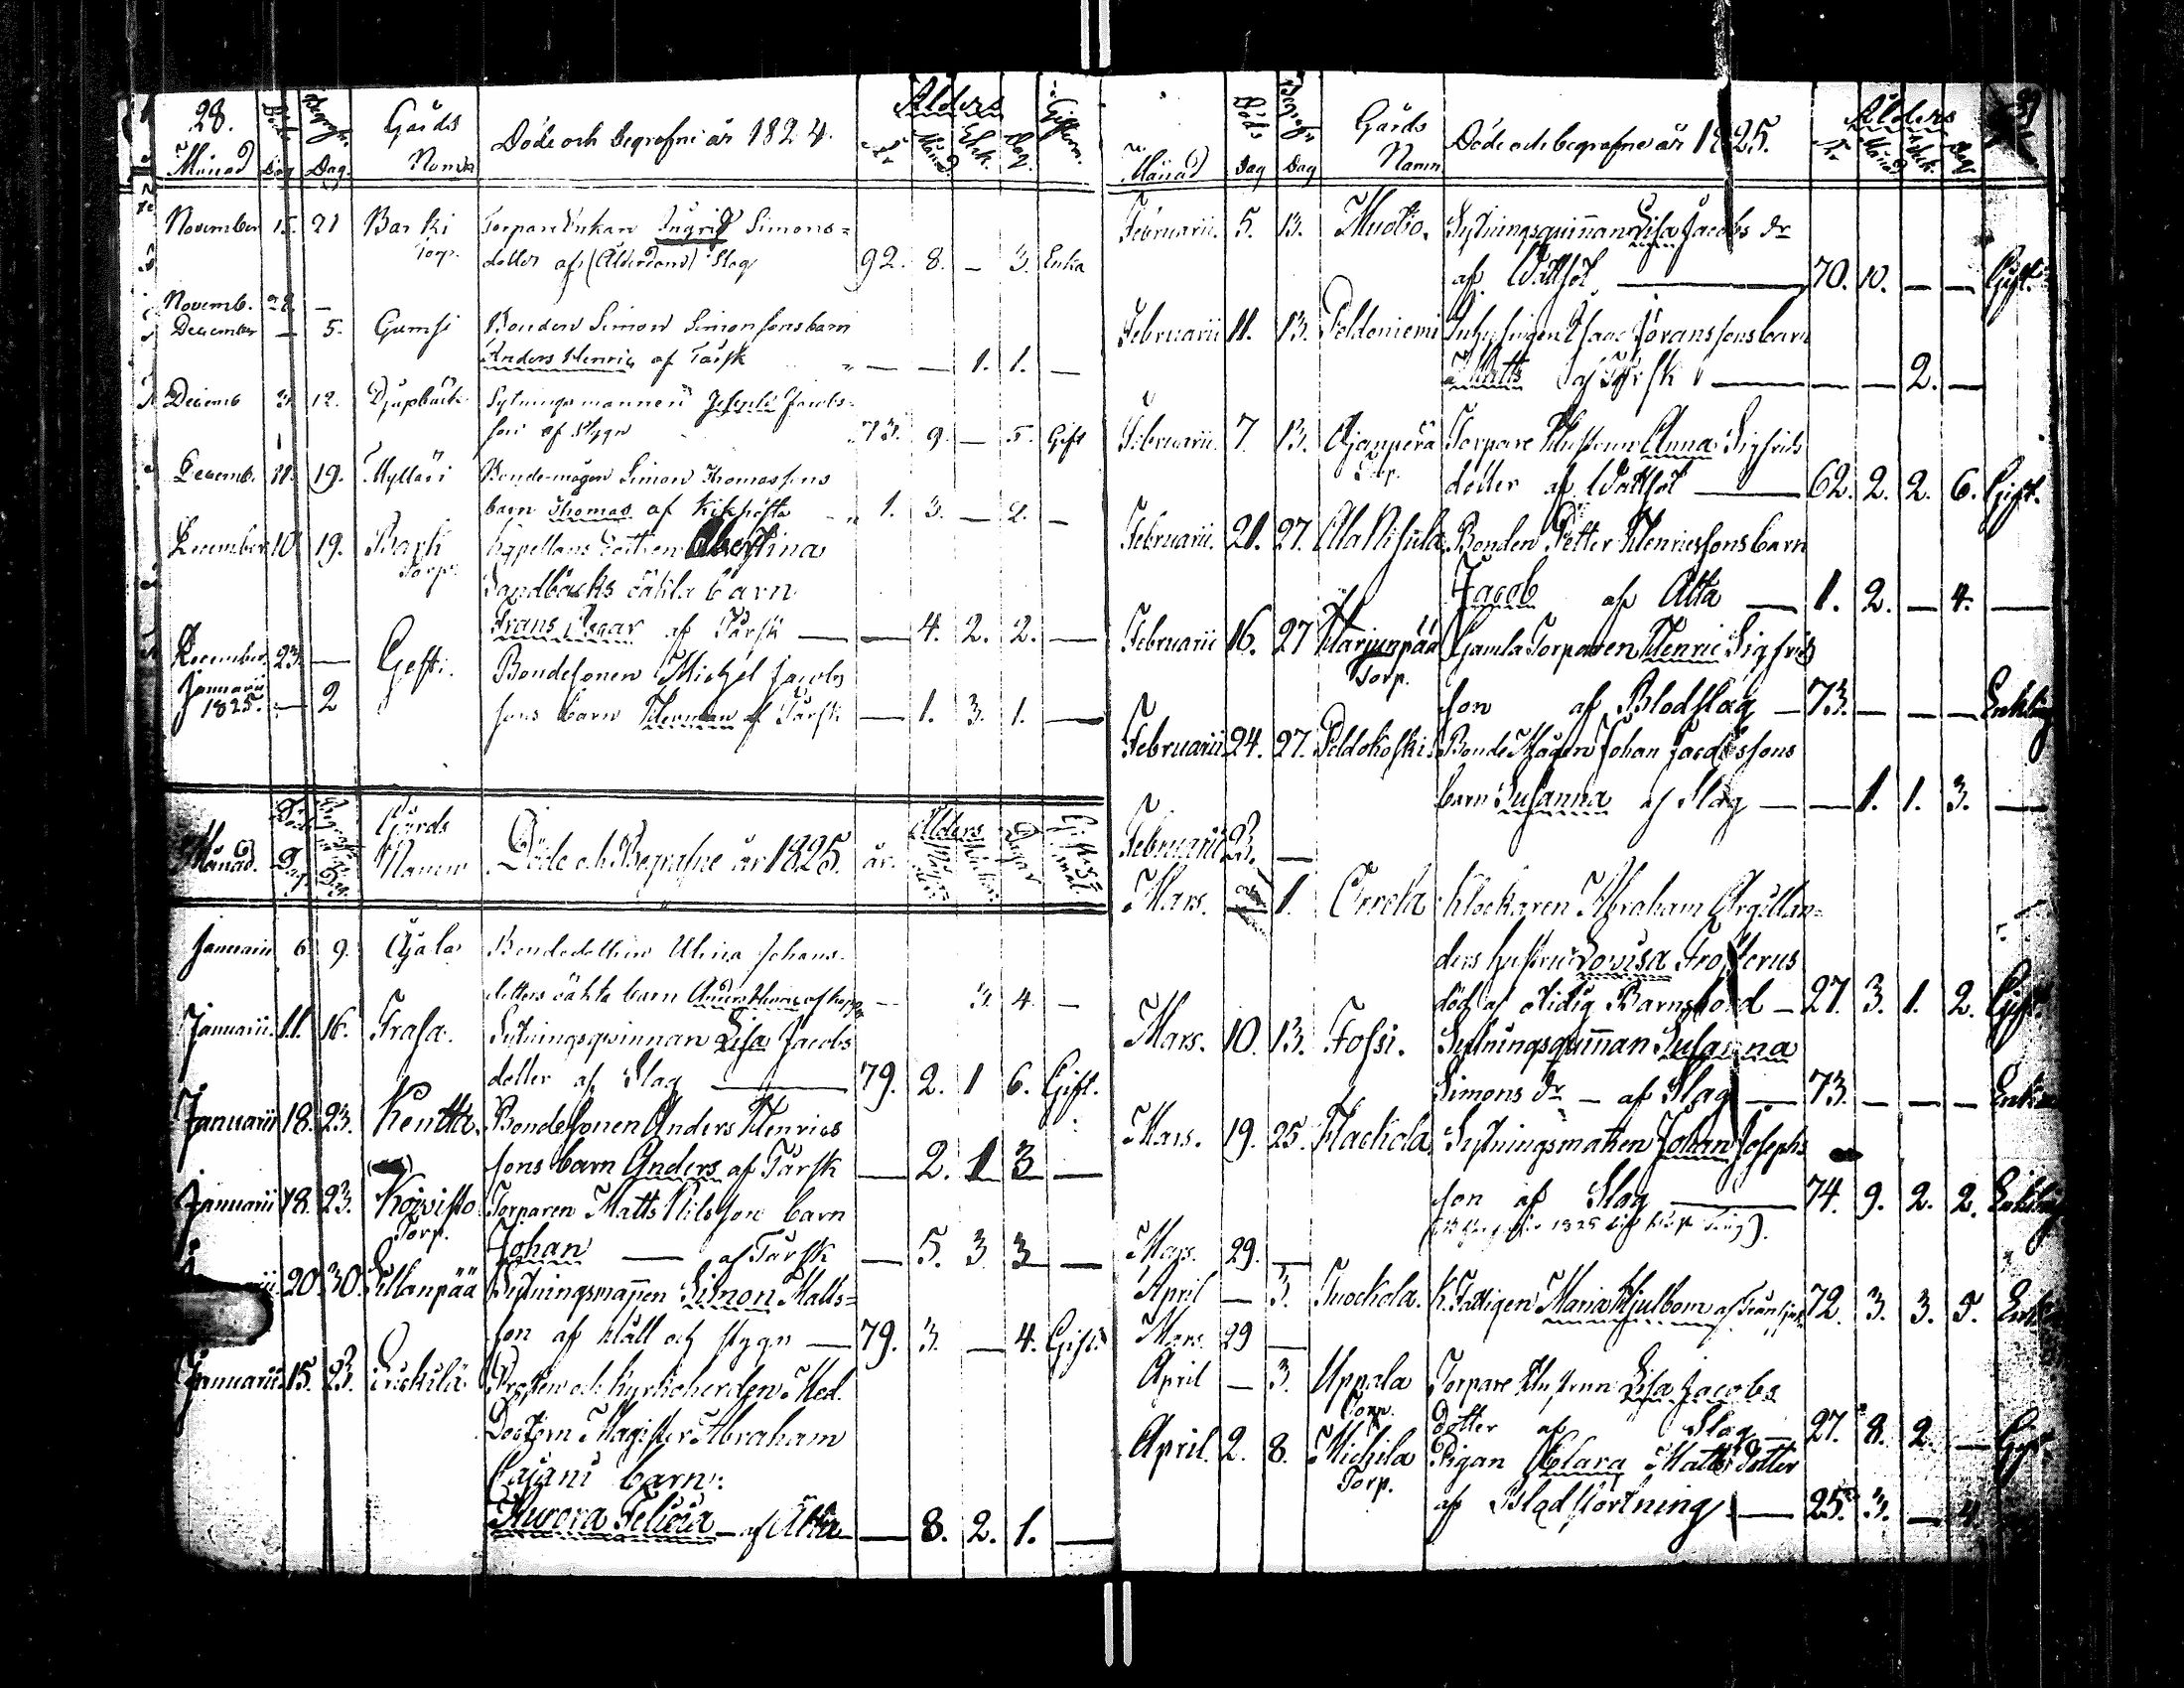 28.
Månad Döde Dag Begrafn. Dag. Gårds Namn Döde och begrafne år 1824. Alders år Månad Dag. Giftern.
November 15. 21 Barki Torparenkan Ingrid Simons=
Torp. dotter af (Ålderdom) Slag 92. 8. — 3. Enka
Novemb. 28 —
December — 5. Gumsi Bonden Simon Simonssons barn
Anders Henric af Tärsk — — 1. 1. —
Decemb 12. Djupbäck Sytningsmannen Joseph Jacobs-
son af Stygn 73. 9. — 5. Gift
Decemb. 11. 19. Myllari Bonde-mågen Simon Thomassons
barn Thomas af Kikhosta 1. 3. — 2. —
December 10 19. Bark
Torp.
Sandbacks oäkta barn
Frans Oscar af Tärsk — — 4. 2. 2. —
December 23. — Bondesonen Michel Jacobs
Januarii 1825. — 2 sons barn Herman af Tärsk — 1. 3. 1. —
Månad. Döde Dag Gårds Namn Döde och Begrafne år 1825. år. Alders Dagar
Januarii 6. 9. Bondedottren Ulrica Johans-
dotters oäkta barn Anders Henric af — 3. 4. —
Januarii. 11. 16. Frasa. Sytningsqvinnan Lisa Jacobs
dotter af Slag — 79. 2. 1 6. Gift.
Januarii 18. 23. Kentta. Bondesonen Anders Henrics
sons barn Anders af Tärsk — 2. 1 3 —
Januarii 18. 23. Koivisto Torparen Matts Nilsson barn
Torp. Johan — af Tärsk — 5. 3 3 —
20. 30. Sillanpää Sytningsmannen Simon Matts=
son af Håll och stygn — 79. 3. — 4. Gift.
Januarii 15. 23. Prosten och Kyrkoherden Med.
Doctorn Magister Abraham
Cajani barn:
Aurora Felicia — af Älta — — 8. 2. 1. —
Månad Döds Dag Begrafn Dag Gårds Namn Döde och begrafne år 1825. Alders år Månad Dag
Februarii. 5. 13. Muotio. Sytningsquinnan Lisa Jacobs dr
af Wattsot — 70. 10. — — Gift.
Februarii 11. 13. Peldoniemi Inhysingen Isaac Göranssons barn
Matts af Tärsk — — — 2. —
Februarii. 7 13. Ojanperä Torpare Hustrun Anna Sigfrids
Torp. dotter af Wattsot — 62. 2. 2. 6. Gift.
Februarii. 21. 27. Ala Nisula Bonden Petter Henricssons barn
Jacob af Älta — 1. 2. — 4. —
Februarii 16. 27 Harjunpää Gamla Torparen Henric Sigfrids
Torp. son af Blodslag — 73. — — — Enkling
Februarii 24. 27. Peldokoski Bonde Mågen Johan Jacobssons
barn Susanna af Slag — — 1. 1. 3. —
Februarii 23. —
Mars. — 1. Orrela Klockaren Abraham Argillan=
ders hustru Lovisa Frosterus
död af otidig Barnsbörd — 27. 3. 1. 2. Gift
Mars. 10. 13. Fossi. Sytningsquinnan Susanna
Simons dr — af Slag — 73. — — — Enka
Mars. 19. 25. Hackola Sytningsmannen Johan Josephs
son af Slag — 74. 9. 2. 2. Enkling
Mars. 29. —
April — 3. Tuockola. K. Fattigen Maria Hjulbom af 72. 3. 3. 5. Enka
Mars. 29 —
April — 3. Uppala Torpare Hustrun Lisa Jacobs
Torp. dotter af Slag — 27. 8. 2. — Gift.
April. 2. 8. Mickila Pigan Clara Matts dotter
Torp. af Blodstörtning — 25. 3. — 4.